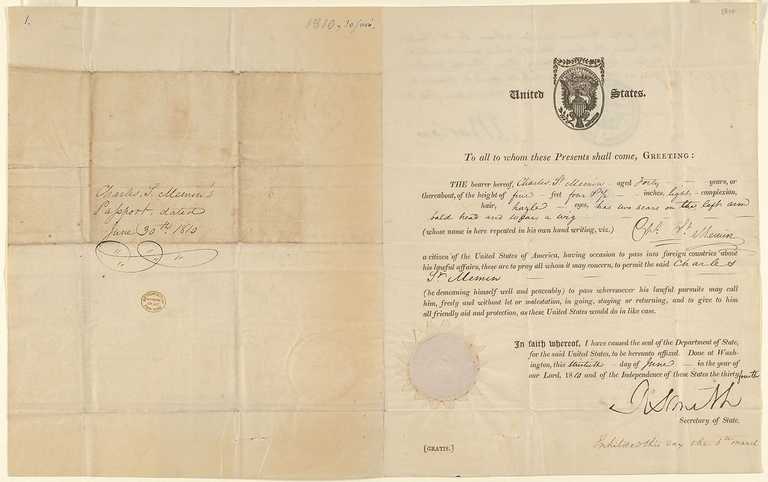 1.
1810. 30 June.
Charles. St. Memin's
Passport. dated
June 30th 1810
1810
United States.
To all to whom these Presents shall come, GREETING:
THE bearer hereof, Charles St Memin — aged Forty — years, or
thereabout, of the height of five — feet four & ½ — inches, light — complexion,
hair, hazle — eyes, has two scars on the left arm
bald head and wears a wig —
(whose name is here repeated in his own hand writing, viz.) St. Memin
a citizen of the United States of America, having occasion to pass into foreign countries about
his lawful affairs, these are to pray all whom it may concern, to permit the said Charles
St. Memin —
(he demeaning himself well and peaceably) to pass wheresoever his lawful pursuits may call
him, freely and without let or molestation, in going, staying or returning, and to give to him
all friendly aid and protection, as these United States would do in like case.
In faith whereof, I have caused the seal of the Department of State,
for the said United States, to be hereunto affixed. Done at Wash-
ington, this thirtieth - day of June — in the year of
our Lord, 1810 and of the Independence of these States the thirty fourth
R Smith
Secretary of State.
(GRATIS.)
Exhibited this day the 5th march